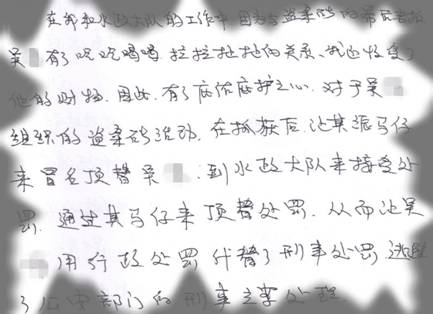 在郭和水政大队的工作中因为与盗采砂的幕后老板
吴 有了吃吃喝喝拉拉扯扯的关系、我也收受了
他的财物. 因此. 有了庇佑庇护之心. 对于吴
组织的盗采砂活动. 在抓获后. 让其派马仔
来冒名顶替吴 . 到水政大队来接受处
罚. 通过其马仔来顶替处罚. 从而让吴
用行政处罚代替了刑事处罚 逃避
了 部门的刑事 处理